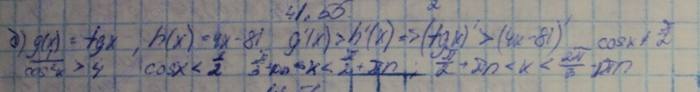 41.55 2
б) g(x) = tgx, h(x) = 4x-81 g'(x) > h'(x) => (tgx)' > (4x-81)' cosx ≠ π/2
1/cos²x > 4 cosx < π/2 π/3+πn < x < π/2+πn; π/2+πn < x < 2π/3+πn